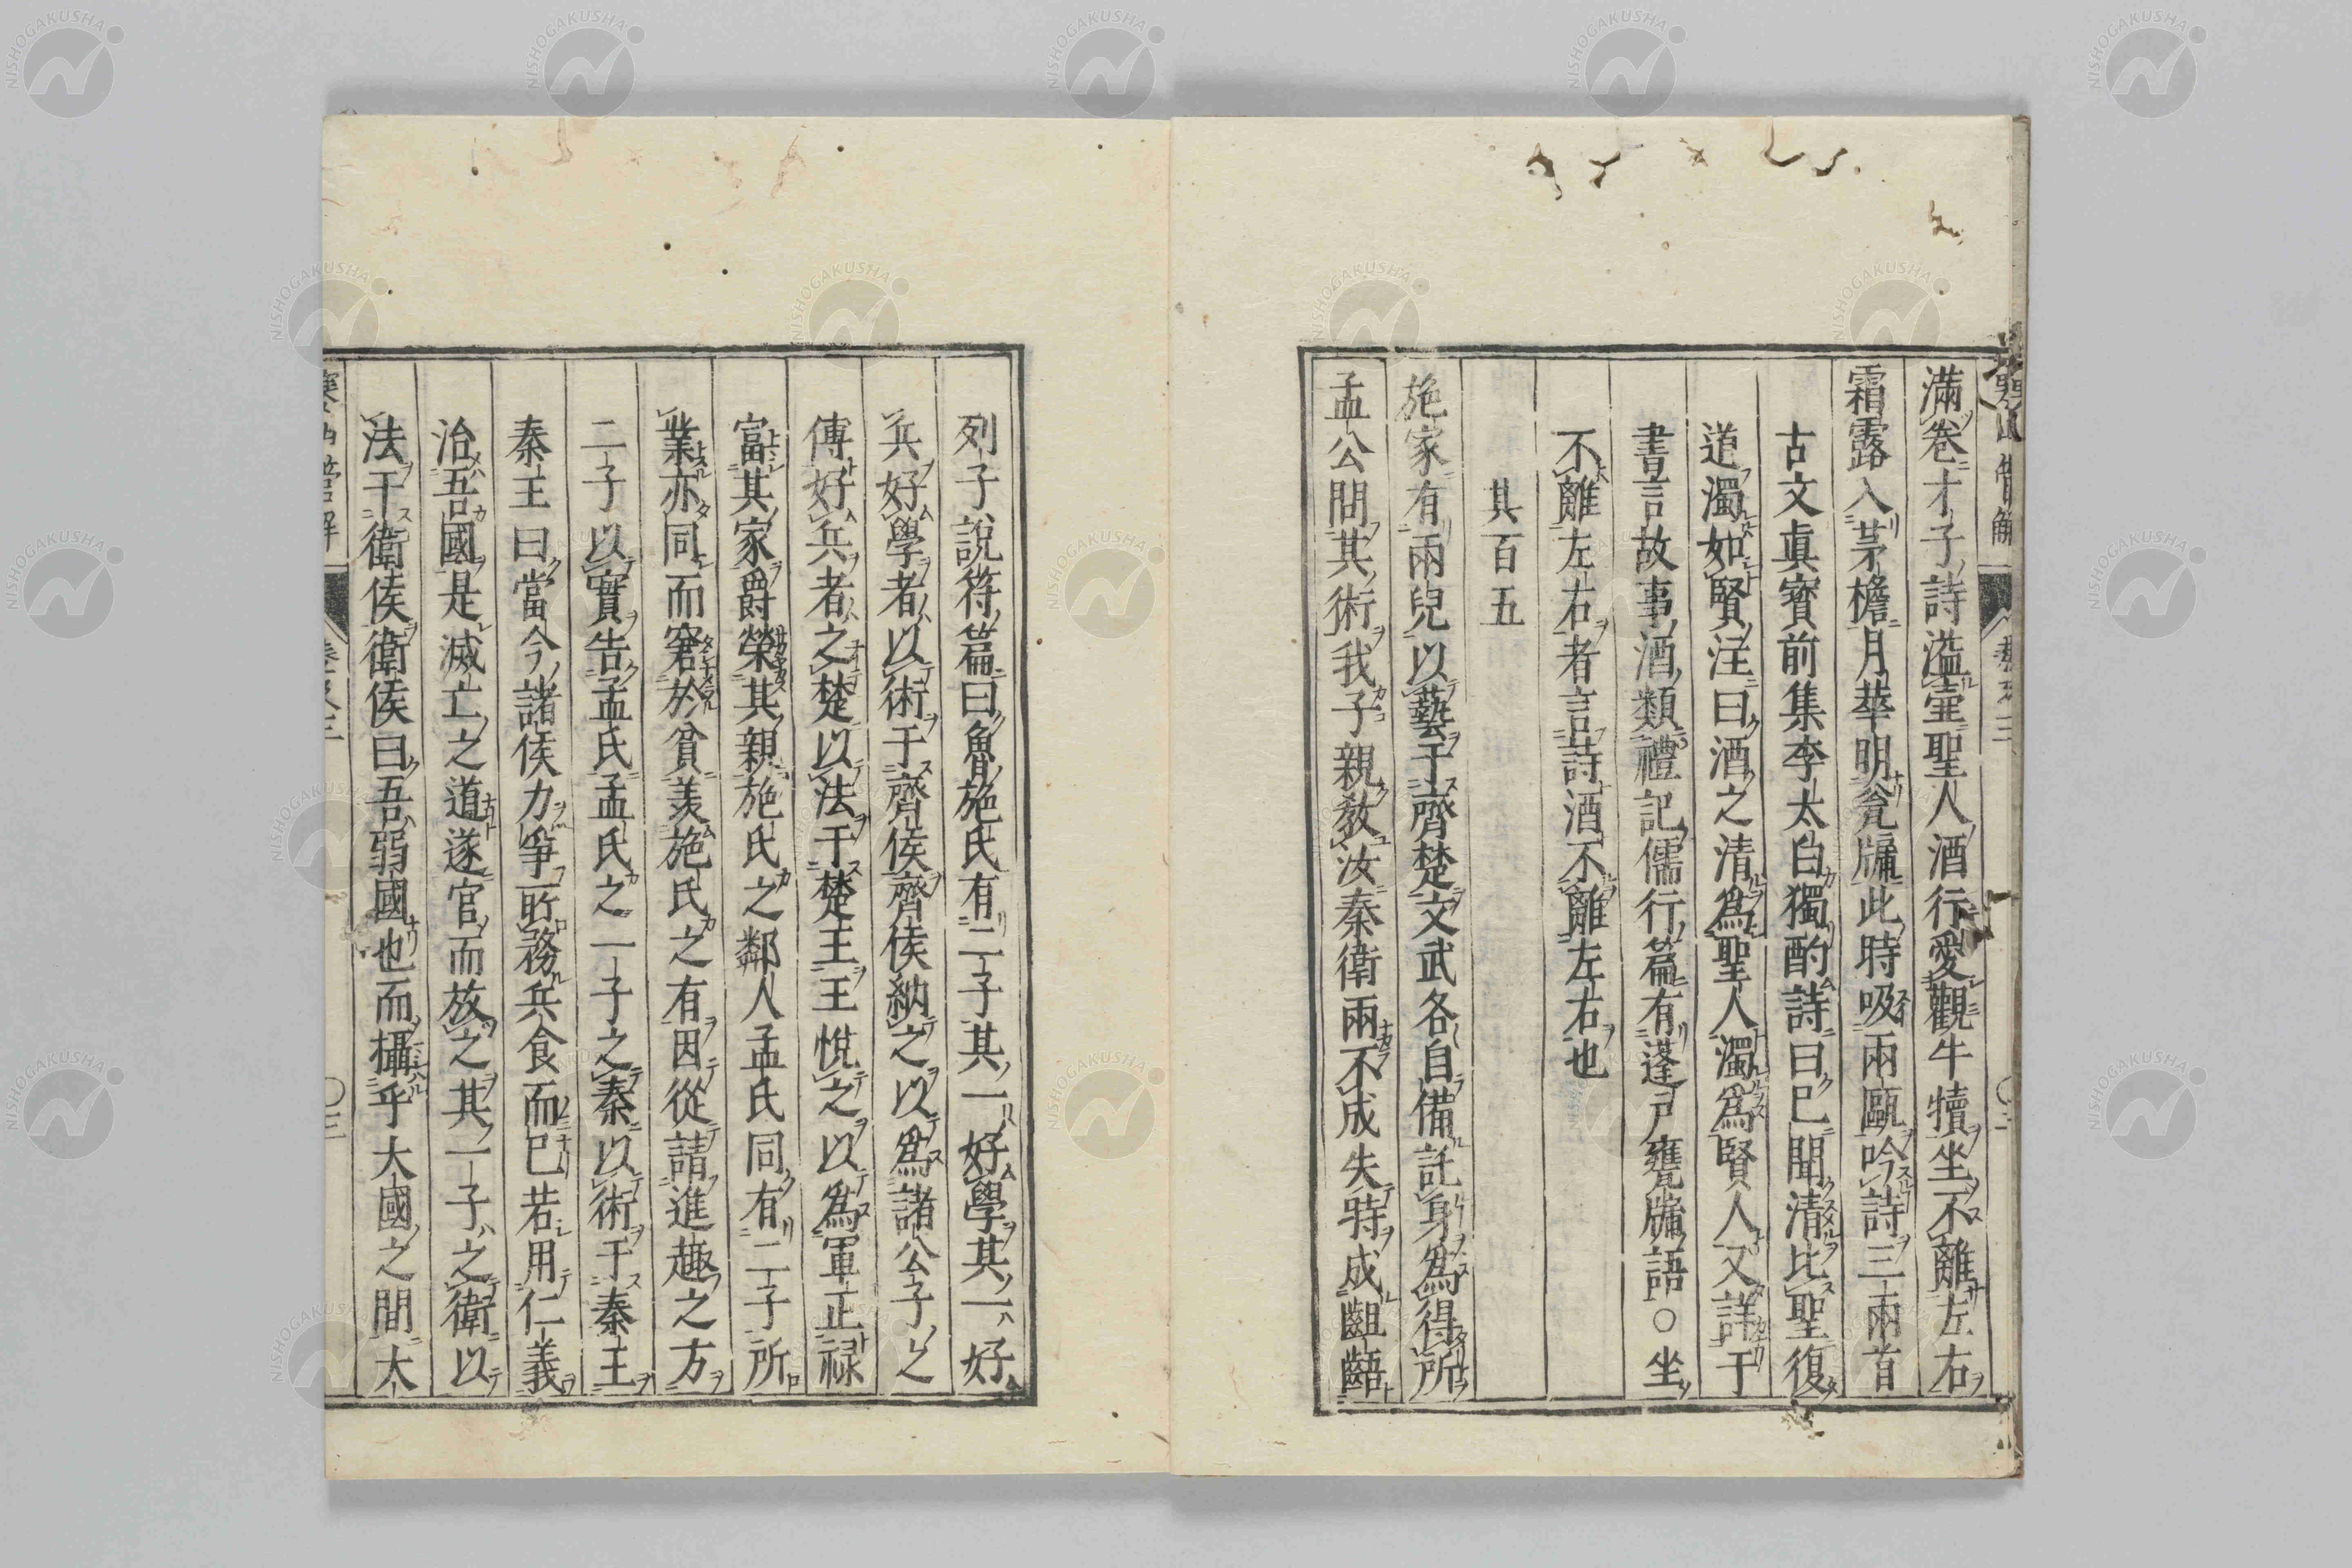 滿卷才子詩溢壷聖人酒行愛觀牛犢坐不離左右
霜露入茅檐月華明瓮牖此時吸兩甌吟詩三兩首
古文眞寳前集李太白獨酌詩曰已聞清比聖復
道濁如賢注曰酒之清爲聖人濁爲賢人又詳于
書言故事酒類禮記儒行篇有蓬戸甕牖語○坐
不離左右者言詩酒不離左右也
其百五
施家有兩兒以藝干齊楚文武各自備託身爲得所
孟公問其術我子親敎汝秦衛兩不成失時成齟齬
列子說符篇曰魯施氏有二子其一好學其一好
兵好學者以術干齊侯齊侯納之以爲諸公子之
傅好兵者之楚以法干楚王王悅之以爲軍正祿
富其家爵榮其親施氏之鄰人孟氏同有二子所
業亦同而窘於貧羨施氏之有因從請進趣之方
二子以實告孟氏孟氏之一子之秦以術干秦王
秦王曰當今諸侯力爭所務兵食而已若用仁義
治吾國是滅亡之道遂宮而放之其一子之衛以
法干衛侯衛侯曰吾弱國也而攝乎大國之間大
NISHOGAKUSHA